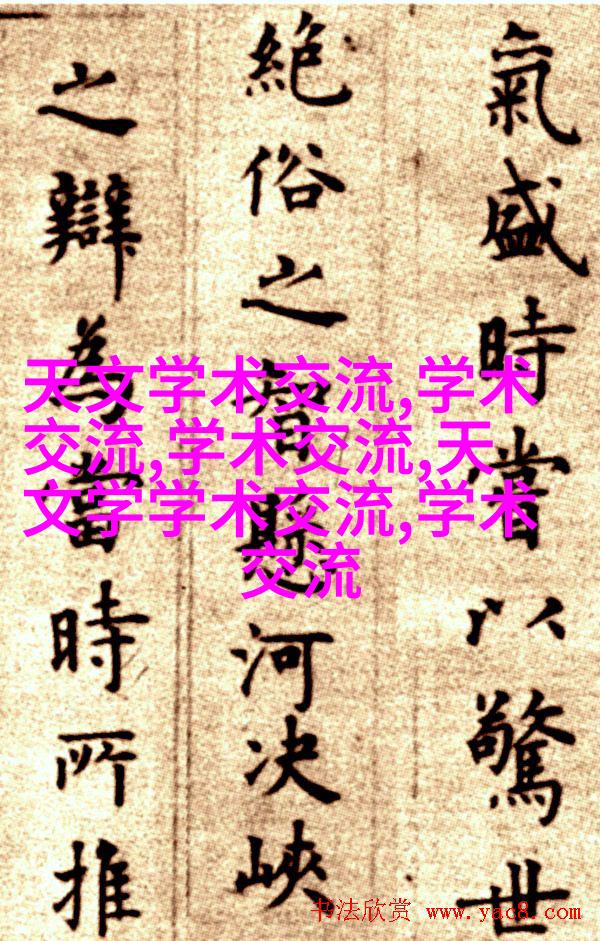 氣盛時嘗以驚世
絶俗之智懸河决峽
之辯為當時所推
天文学术交流,学术
交流,学术交流,天
文学学术交流,学术
交流
书法欣赏 www.yac8.com